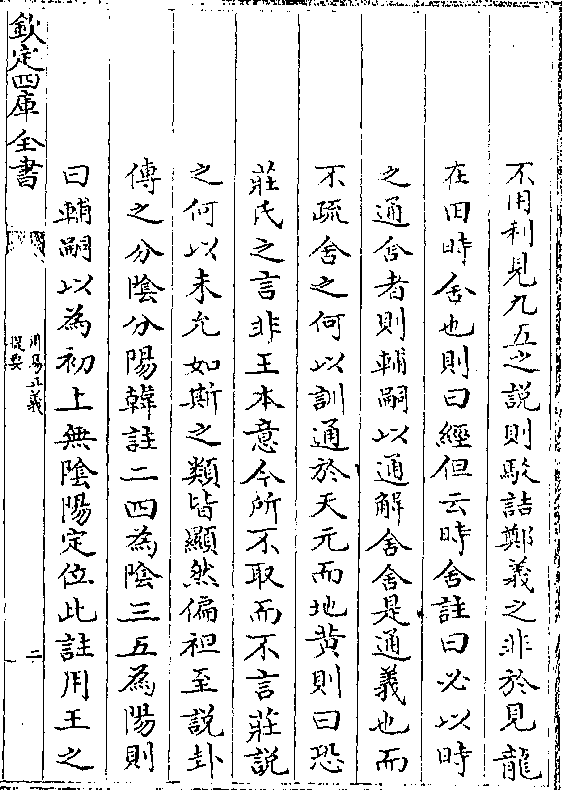 不用利見九五之説則駁詰鄭義之非於見龍
在田時舍也則曰經但云時舍註曰必以時
之通舍者則輔嗣以通解舍舍是通義也而
不疏舍之何以訓通於天元而地黄則曰恐
莊氏之言非王本意今所不取而不言莊説
之何以未允如斯之類皆顯然偏袒至説卦
傳之分陰分陽韓註二四為陰三五為陽則
曰輔嗣以為初上無陰陽定位此註用王之
欽定四庫全書
周易正義
提要
二